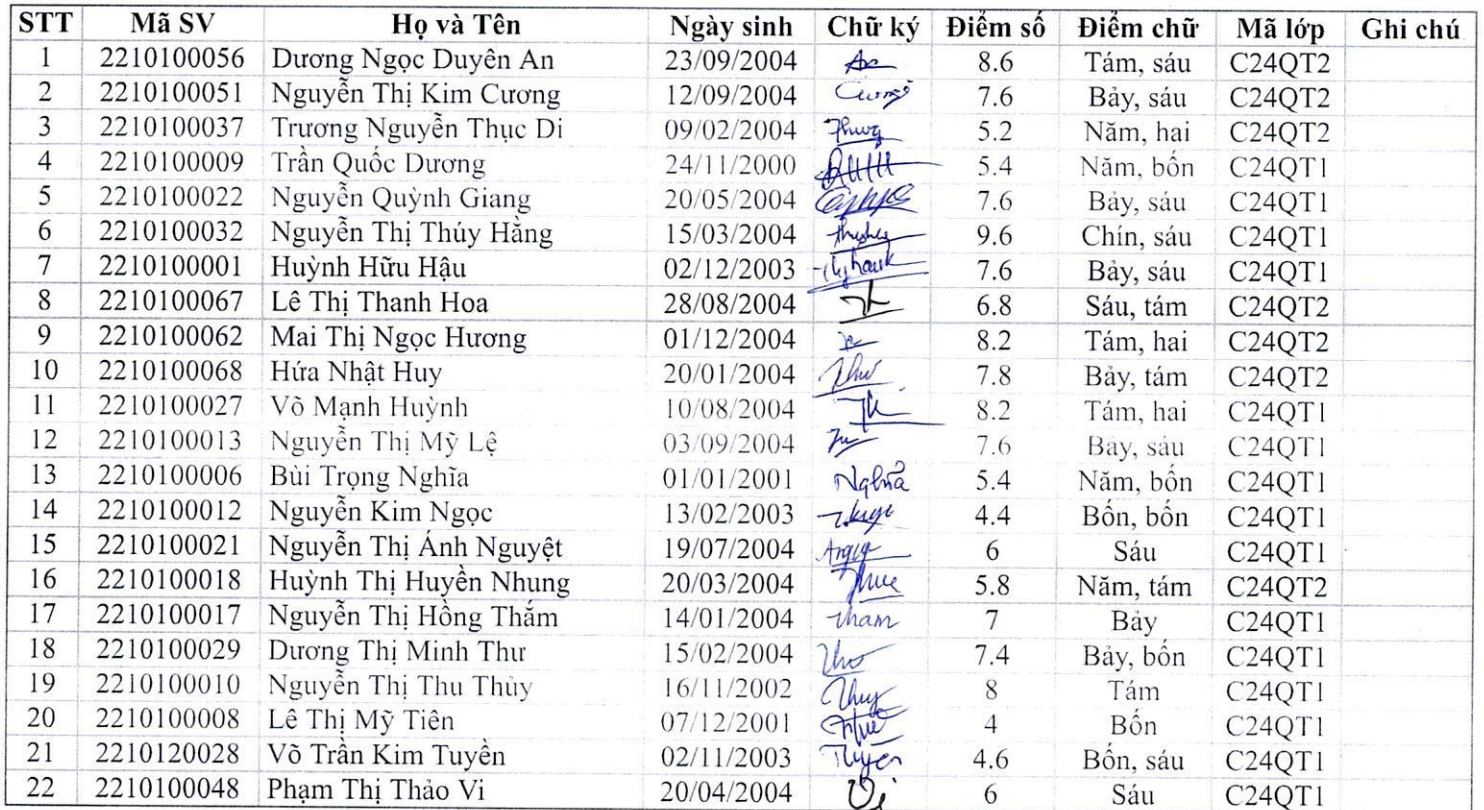 STT Mã SV Họ và Tên Ngày sinh Chữ ký Điểm số Điểm chữ Mã lớp Ghi chú
1 2210100056 Dương Ngọc Duyên An 23/09/2004 An 8.6 Tám, sáu C24QT2
2 2210100051 Nguyễn Thị Kim Cương 12/09/2004 Cương 7.6 Bảy, sáu C24QT2
3 2210100037 Trương Nguyễn Thục Di 09/02/2004 5.2 Năm, hai C24QT2
4 2210100009 Trần Quốc Dương 24/11/2000 5.4 Năm, bốn C24QT1
5 2210100022 Nguyễn Quỳnh Giang 20/05/2004 7.6 Bảy, sáu C24QT1
6 2210100032 Nguyễn Thị Thúy Hằng 15/03/2004 9.6 Chín, sáu C24QT1
7 2210100001 Huỳnh Hữu Hậu 02/12/2003 7.6 Bảy, sáu C24QT1
8 2210100067 Lê Thị Thanh Hoa 28/08/2004 6.8 Sáu, tám C24QT2
9 2210100062 Mai Thị Ngọc Hương 01/12/2004 8.2 Tám, hai C24QT2
10 2210100068 Hứa Nhật Huy 20/01/2004 7.8 Bảy, tám C24QT2
11 2210100027 Võ Mạnh Huỳnh 10/08/2004 8.2 Tám, hai C24QT1
12 2210100013 Nguyễn Thị Mỹ Lệ 03/09/2004 7.6 Bảy, sáu C24QT1
13 2210100006 Bùi Trọng Nghĩa 01/01/2001 Nghĩa 5.4 Năm, bốn C24QT1
14 2210100012 Nguyễn Kim Ngọc 13/02/2003 4.4 Bốn, bốn C24QT1
15 2210100021 Nguyễn Thị Ánh Nguyệt 19/07/2004 6 Sáu C24QT1
16 2210100018 Huỳnh Thị Huyền Nhung 20/03/2004 5.8 Năm, tám C24QT2
17 2210100017 Nguyễn Thị Hồng Thắm 14/01/2004 tham 7 Bảy C24QT1
18 2210100029 Dương Thị Minh Thư 15/02/2004 7.4 Bảy, bốn C24QT1
19 2210100010 Nguyễn Thị Thu Thủy 16/11/2002 Thuy 8 Tám C24QT1
20 2210100008 Lê Thị Mỹ Tiên 07/12/2001 4 Bốn C24QT1
21 2210120028 Võ Trần Kim Tuyền 02/11/2003 Tuyen 4.6 Bốn, sáu C24QT1
22 2210100048 Phạm Thị Thảo Vi 20/04/2004 Vi 6 Sáu C24QT1